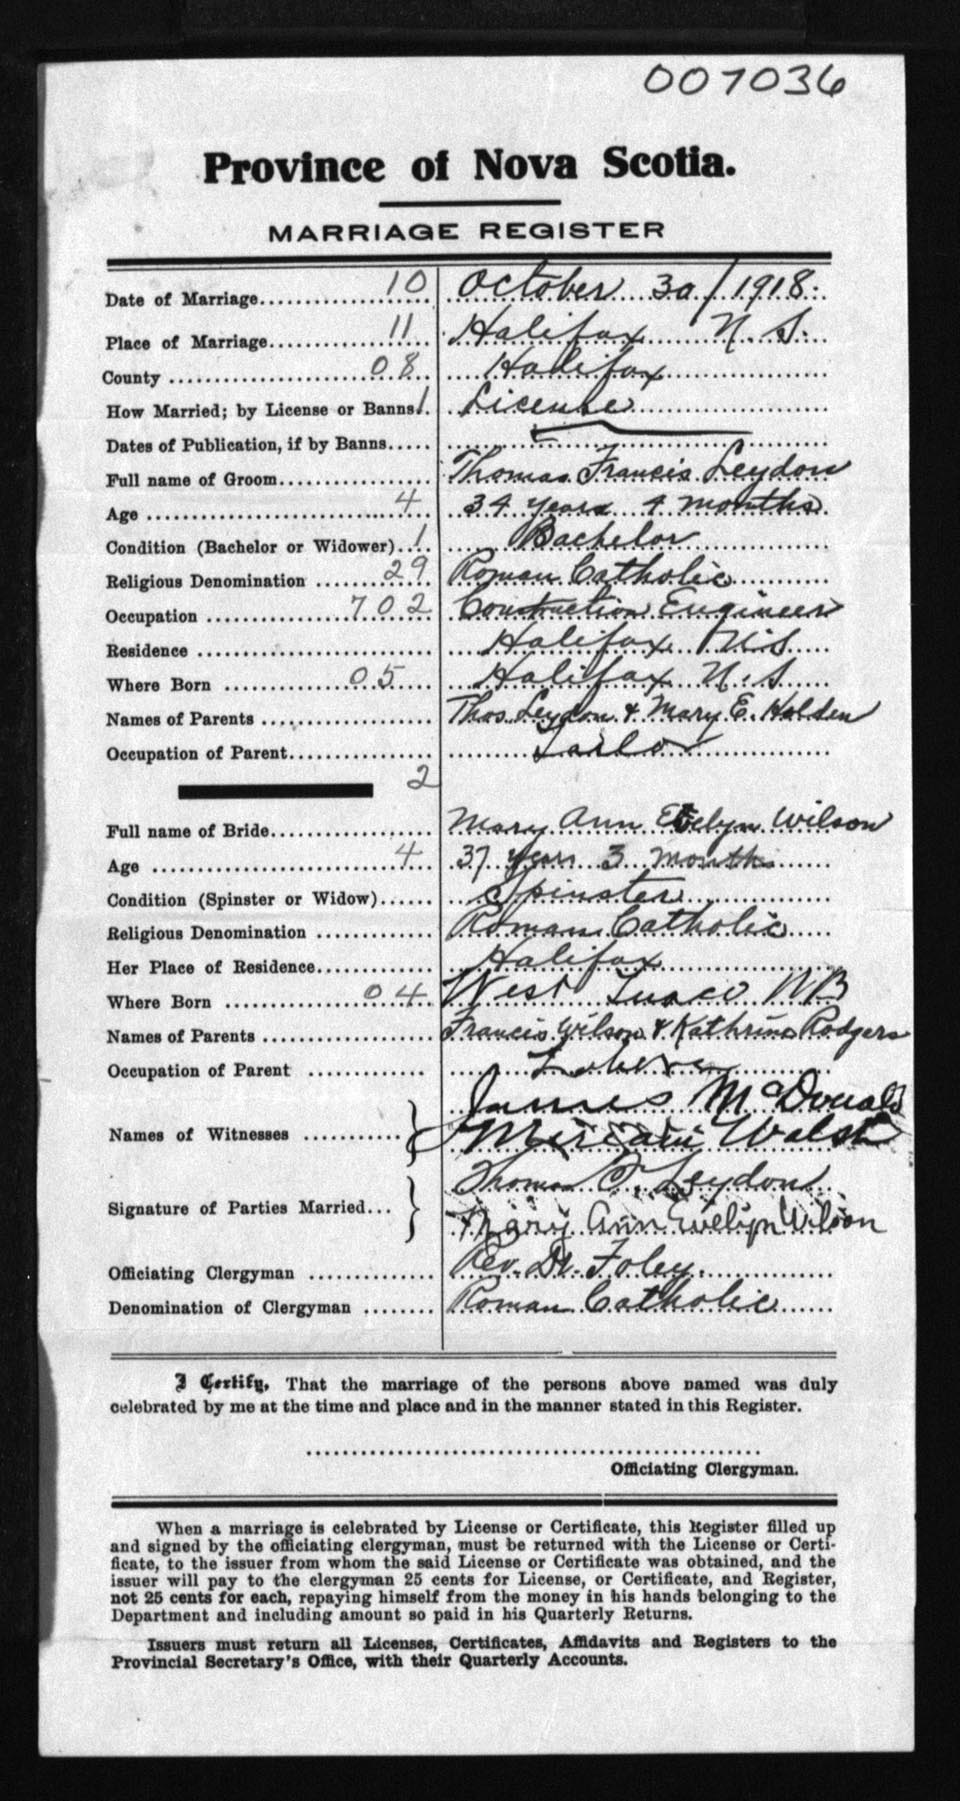 007036
Province of Nova Scotia.
MARRIAGE REGISTER
Date of Marriage 10 October 30/1918.
Place of Marriage 11 Halifax N.S.
County 08 Halifax
How Married; by License or Banns 1 License
Dates of Publication, if by Banns
Full name of Groom Thomas Francis Leydon
Age 4 34 years 4 months
Condition (Bachelor or Widower) 1 Bachelor
Religious Denomination 29 Roman Catholic
Occupation 702 Construction Engineer
Residence Halifax N.S
Where Born 05 Halifax N.S
Names of Parents Thos Leydon & Mary E. Holden
Occupation of Parent
2
Full name of Bride Mary Ann Evelyn Wilson
Age 4 37 years 3 months
Condition (Spinster or Widow) Spinster
Religious Denomination Roman Catholic
Her Place of Residence Halifax
Where Born 04 West Quaco NB
Names of Parents Francis Wilson & Kathrine Rodgers
Occupation of Parent Laborer
James McDonald
Names of Witnesses Miriam Walsh
Thomas F. Leydon
Signature of Parties Married Mary Ann Evelyn Wilson
Officiating Clergyman Rev. Dr. Foley.
Denomination of Clergyman Roman Catholic
I Certify, That the marriage of the persons above named was duly
celebrated by me at the time and place and in the manner stated in this Register.
Officiating Clergyman.
When a marriage is celebrated by License or Certificate, this Register filled up
and signed by the officiating clergyman, must be returned with the License or Certi-
ficate, to the issuer from whom the said License or Certificate was obtained, and the
issuer will pay to the clergyman 25 cents for License, or Certificate, and Register,
not 25 cents for each, repaying himself from the money in his hands belonging to the
Department and including amount so paid in his Quarterly Returns.
Issuers must return all Licenses, Certificates, Affidavits and Registers to the
Provincial Secretary's Office, with their Quarterly Accounts.